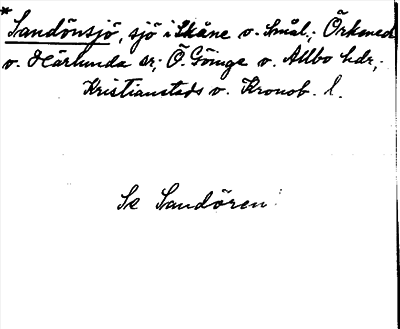 * Sandönsjö, sjö i Skåne o. Smål.; Örkened
o. Härlunda sr; Ö. Göinge o. Allbo hdr;
Kristianstads o. Kronob. l.
Se Sandören